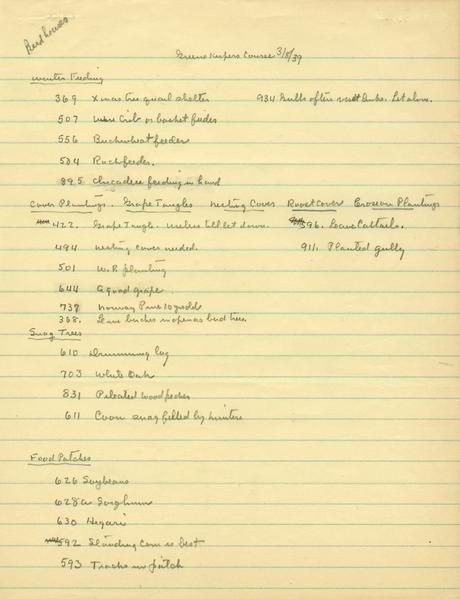 Bird houses
Greens Keepers Course 3/8/39
Winter Feeding
369 Xmas tree quail shelter 934 Gulls often visit Let alone.
507 Wire Crib or basket feeder
556 Buckwheat feeder
504 Rack feeder.
895 Chicadees feeding in hand
Cover Plantings. Grape Tangles Nesting Cover Roost Cover Erosion Plantings
422. Grape Tangle. let down. 596. Leave Cattails.
494 nesting cover needed. 911. Planted gully
501 W. P. planting
644 A good grape
739 Norway Pine 10 yr old
368. Leave birches in open as bud trees.
Snag Trees
610 Drumming log
703 White Oak
831 Pileated woodpecker
611 Coon snag felled by hunters
Food Patches
626 Soybeans
628a Sorghum
630 Hegari
592 Standing Corn is best
593 Tracks in patch